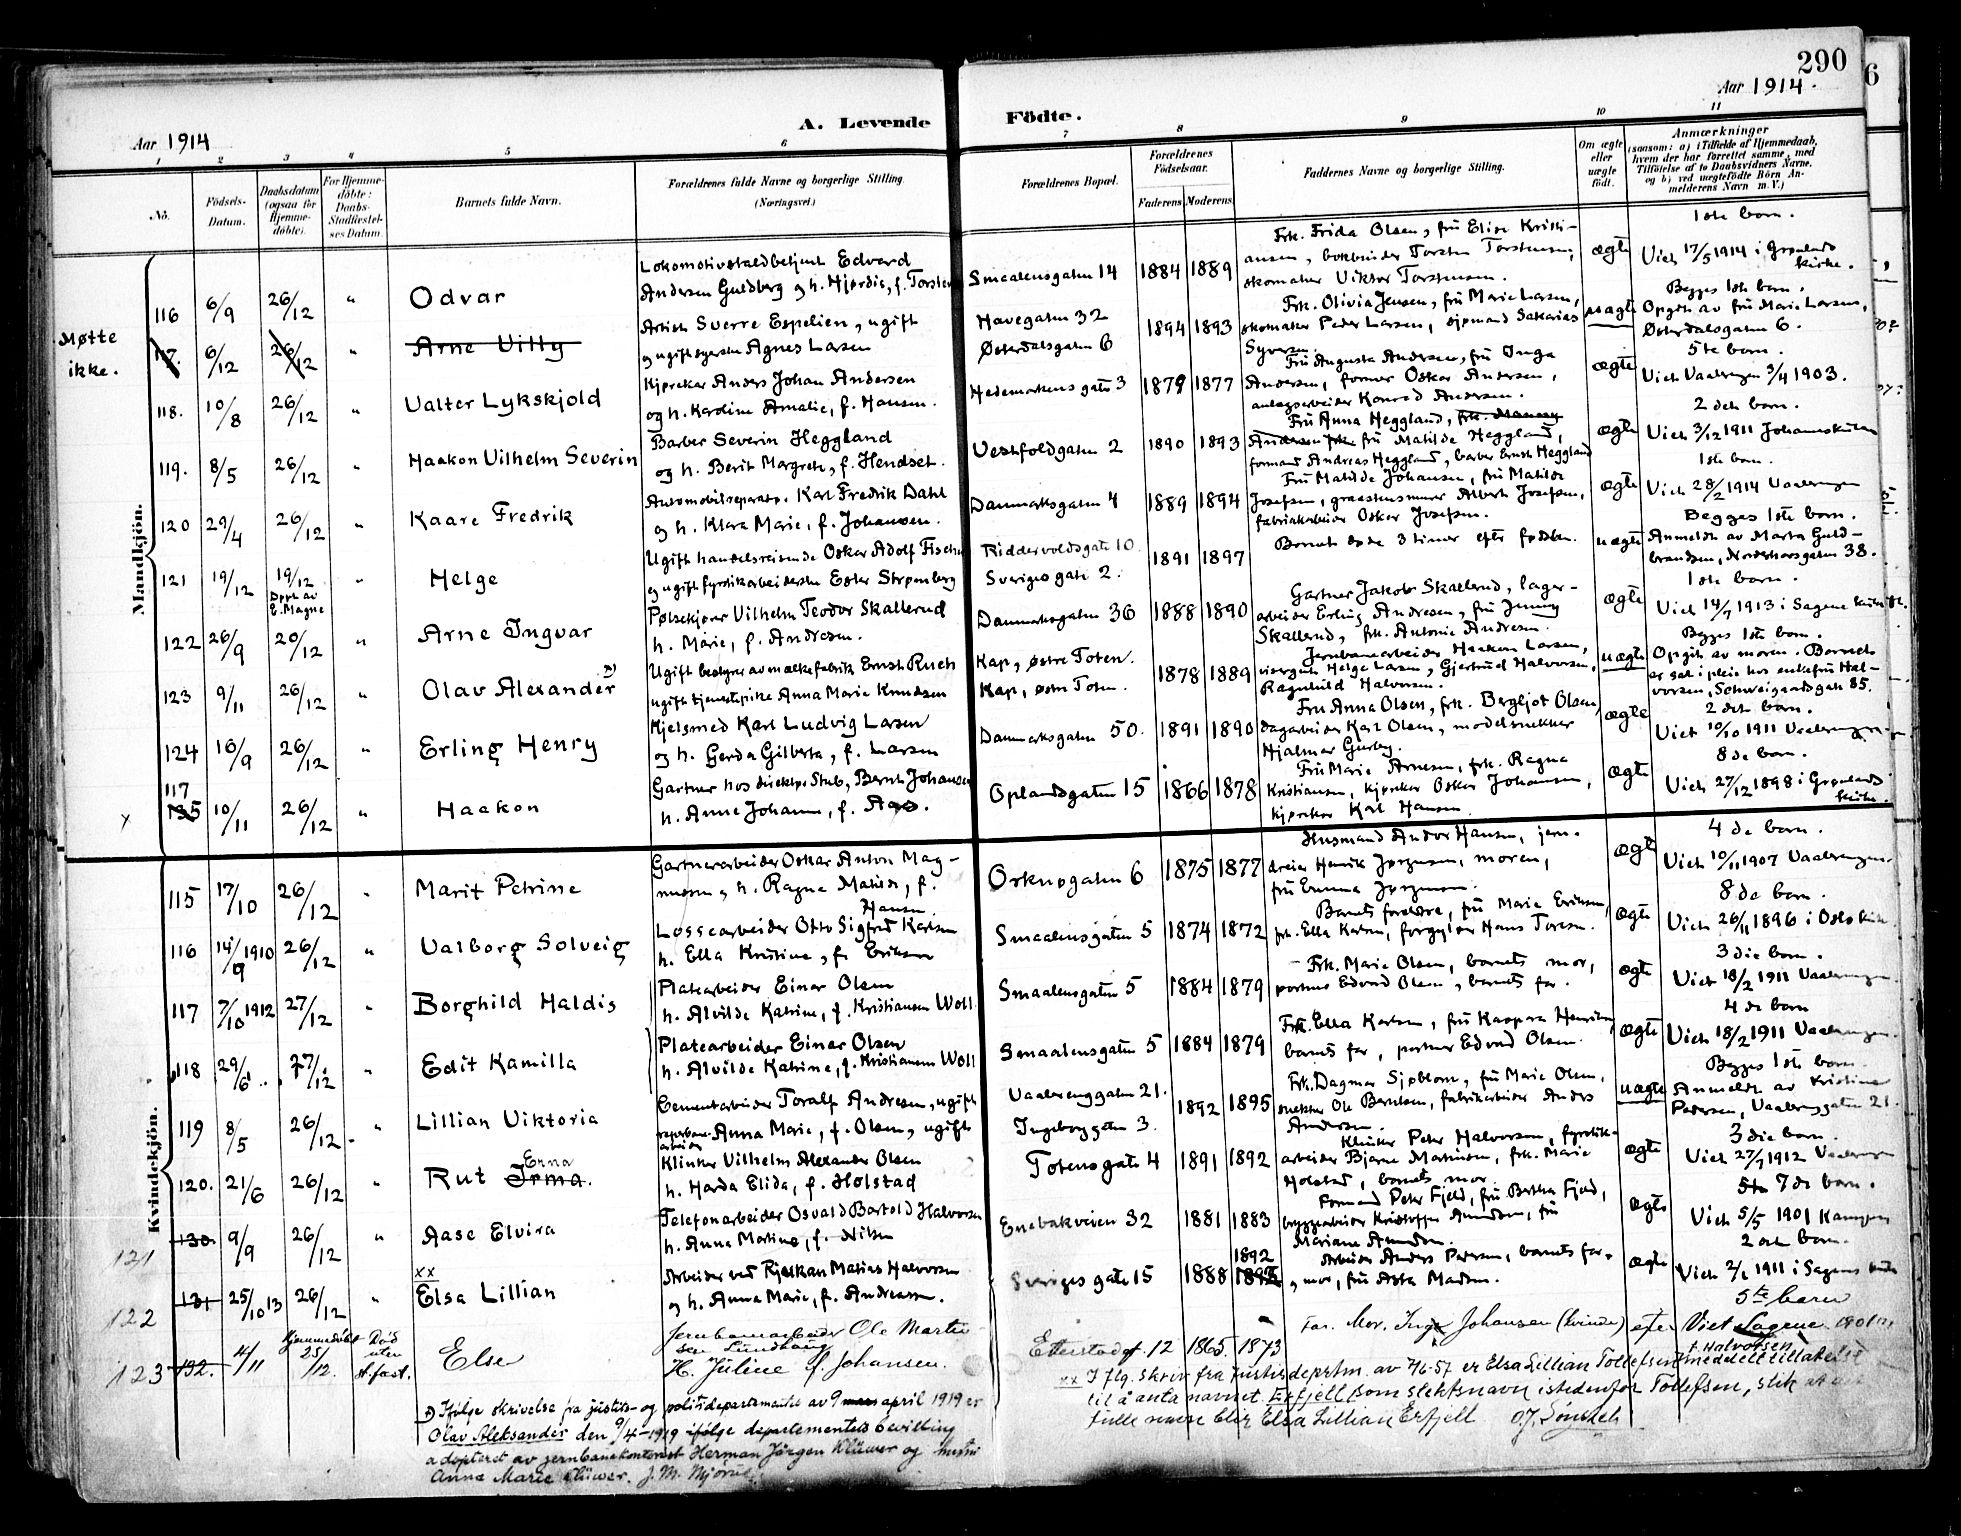 290
Aar 1914.
6
Aar 1914
A. Levende Födte.
1 2 3 4 5 6 7 8 9 10 11
No.
Födsels-Datum.
Daabsdatum (ogsaa for Hjemme-döbte).
For Hjemme-döbte: Daabs-Stadfæstel-ses Datum.
Barnets fulde Navn.
Forældrenes fulde Navne og borgerlige Stilling. (Næringsvei.)
Forældrenes Bopæl.
Forældrenes Födselsaar.
Faderens Moderens
Faddernes Navne og borgerlige Stilling.
Om ægte eller uægte födt.
Anmærkninger (saasom: a) i Tilfælde af Hjemmedaab, hvem der har forrettet samme, med Tilföielse af to Daabsvidners Navne, og b) ved uægtefödte Börn An-melderens Navn m. V.)
Mandkjön.
116 6/9 26/12 " Odvar
Lokomotivstaldbetjent Edvard
Andersen Guldberg og h. Hjørdis, f. Torsten
Smaalensgaten 14 1884 1889
Frk. Frida Olsen, fru Elise Kristi-
ansen, bokbinder Torsten Torstensen,
skomaker Viktor Torstensen.
ægte
1ste barn.
Viet 17/5 1914 i Grønlands
kirke.
Møtte
ikke.
117. 6/12 26/12 " Arne Willy
Artist Sverre Espelien, ugift
og ugift syerske Agnes Larsen
Havegaten 32
Østerdalsgaten 6
1894 1893
Frk. Olivia Jensen, fru Marie Larsen,
skomaker Peder Larsen, sjømand Sakarias
Syversen.
uægte
Begges 1ste barn.
Opgit av fru Marie Larsen,
Østerdalsgaten 6.
118. 10/8 26/12 " Valter Lykskjold
Kjørekar Anders Johan Andersen
og h. Karoline Amalie, f. Hansen.
Hedemarkens gate 3 1879 1877
Fru Augusta Andersen, fru Inga
Andersen, former Oskar Andersen,
anlægsarbeider Konrad Andersen.
ægte
5te barn.
Viet Vaalerengen 3/4 1903.
119. 8/5 26/12 " Haakon Vilhelm Severin
Barber Severin Heggland
og h. Berit Margrete, f. Hendset.
Vestfoldgaten 2 1890 1893
Fru Anna Heggland,
fru Matilde Heggland,
formand Andreas Heggland, barber Ernst Heggland
ægte
2 det barn.
Viet 3/12 1911 Johanneskirken
120 29/4 26/12 " Kaare Fredrik
Automobilreparatør Karl Fredrik Dahl
og h. Klara Marie, f. Johansen.
Danmarksgaten 4 1889 1894
Fru Matilde Johansen, fru Matilde
Josefsen, Albert Josefsen,
fabrikarbeider Oskar Josefsen.
ægte
1ste barn.
Viet 28/2 1914 Vaalerengen
121 19/12 19/12 Døpt av E. Magne " Helge
Ugift handelsreisende Oskar Adolf Fischer
og ugift fyrstikarbeiderske Ester Strømberg
Riddervoldsgate 10.
Sverigesgate 2.
1891 1897
Barnet døde 3 timer efter fødselen.
uægte
Begges 1ste barn.
Anmeldt av Marta Guld-
brandsen, Nordahlsgaten 38.
122 26/9 20/12 " Arne Ingvar
Pølsekjører Vilhelm Teodor Skallerud
h. Marie, f. Andresen.
Danmarksgaten 36 1888 1890
Gartner Jakob Skallerud, lager-
arbeider Erling Andresen, fru Jenny
Skallerud, frk. Antonie Andresen.
ægte
1ste barn.
Viet 14/7 1913 i Sagene kirke
123 9/11 26/12 " Olav Alexander x)
Ugift bestyrer av melkefabrik Ernst Ruch
ugift tjenestepike Anna Marie Knudsen
Kap, østre Toten.
Kap, østre Toten.
1878 1889
Jernbanearbeider Haakon Larsen,
visergut Helge Larsen, Gjertrud Halvorsen,
Ragnhild Halvorsen.
uægte
Begges 1ste barn.
Opgit av moren. Barnet
er sat i pleie hos enkefru Hal-
vorsen, Schweigaardsgate 85.
124 16/9 26/12 " Erling Henry
Kjelsmed Karl Ludvig Larsen
og h. Gerda Gilberta, f. Larsen
Danmarksgaten 50. 1891 1890
Fru Anna Olsen, frk. Bergljot Olsen,
dagarbeider Karl Olsen, modelsnekker
Hjalmar Gurby.
ægte
2 det barn.
Viet 10/10 1911 Vaalerengen
x 117 125 10/11 26/12 " Haakon
Gartner hos direktør Stub, Bernt Johansen
h. Anne Johanne, f. Aas.
Oplandsgaten 15 1866 1878
Fru Marie Arnesen, frk. Ragna
Kristiansen, kjørekar Oskar Johansen,
kjørekar Karl Hansen
ægte
8de barn.
Viet 27/12 1898 i Grønlands
kirke.
Kvindekjön.
115 17/10 26/12 " Marit Petrine
Gartnerarbeider Oskar Anton Mag-
nussen, h. Ragna Matilde, f.
Hansen
Orknøgaten 6 1875 1877
Husmand Andor Hansen, jern-
dreier Henrik Jørgensen, moren,
fru Emma Jørgensen.
ægte
4 de barn.
Viet 10/11 1907 Vaalerengen
116 14/9 1910 26/12 " Valborg Solveig
Lossearbeider Otto Sigfred Karlsen
h. Ella Kristine, f. Eriksen
Smaalensgaten 5 1874 1872
Barnets forældre, fru Marie Eriksen,
frk. Ella Karlsen, forgylder Hans Toresen.
ægte
8 de barn.
Viet 26/11 1896 i Oslo kirke
117 7/10 1912 27/12 " Borghild Haldis
Platearbeider Einar Olsen
h. Alvilde Katrine, f. Kristiansen Woll
Smaalensgaten 5 1884 1879
Frk. Marie Olsen, barnets mor,
portner Edvard Olsen, barnets far.
ægte
3 die barn.
Viet 18/2 1911 Vaalerengen
118 29/6 27/12 " Edit Kamilla
Platearbeider Einar Olsen
h. Alvilde Katrine, f. Kristiansen Woll
Smaalensgaten 5 1884 1879
Frk. Ella Karlsen, fru Kaspara Henriksen,
barnets far, portner Edvard Olsen.
ægte
4 de barn
Viet 18/2 1911 Vaalerengen
119 8/5 26/12 " Lillian Viktoria
Cementarbeider Toralf Andresen, ugift
Anna Marie, f. Olsen, ugift
Vaalerenggaten 21.
Ingeborggaten 3.
1892 1895
Frk. Dagmar Sjøblom, fru Marie Olsen,
snekker Ole Berntsen, fabrikarbeider Anders
Andersen.
uægte
Begges 1ste barn.
Anmeldt av Kristine
Pedersen, Vaalerenggaten 21.
120. 21/6 26/12 " Rut Irma. Erna
Klinker Vilhelm Alexander Olsen
h. Harda Elida, f. Holstad
Totensgate 4 1891 1892
Klinker Peter Halvorsen, fyrstik-
arbeider Bjarne Martinsen, frk. Marie
Holstad, barnets mor.
ægte
3 die barn.
Viet 27/7 1912 Vaalerengen
121 130 9/9 26/12 " Aase Elvira
Telefonarbeider Osvald Bartold Halvorsen
h. Anna Matine, f. Nilsen
Enebakveien 32 1881 1883
Formand Peter Fjeld, fru Bertha Fjeld,
bryggearbeider Kristoffer Amundsen, fru
Mariane Amundsen.
ægte
5te 7 de barn.
Viet 5/5 1901 Kampen
122 131 25/10 13 26/12 " xx Elsa Lillian
Arbeider ved Rjukan Matias Halvorsen
og h. Anna Marie, f. Andreassen.
Sverigesgate 15 1888 1892
Arbeider Anders Pedersen, barnets far,
mor, fru Asta Madsen.
ægte
2 det barn.
Viet 2/1 1911 i Sagenes kirke
123 132. 4/11 Hjemmedøbt 25/12. Død uten st.fæst. Else
Jernbanearbeider Ole Martin-
sen Sundhaug
H. Juline f. Johansen.
Etterstadgt. 12 1865. 1873
Far. Mor. Inga Johansen (kvinde)
5te barn
Viet Sagene 1901
x) Ifølge skrivelse fra justits- og politidepartementet av 9 april 1919 er
Olav Aleksander den 9/4-1919 ifølge departementets bevilling
adopteret av jernbanekontorist Herman Jörgen Klüwer og hustru
Anna Marie Klüwer. J. M. Njöru.
xx I flg. skriv fra justisdeprtm. av 7/6-57 er Elsa Lillian Tollefsen f. Halvorsen meddelt tillatelse
til å anta navnet Erfjell som slektsnavn istedenfor Tollefsen, slik at det
fulle navne blir Elsa Lillian Erfjell